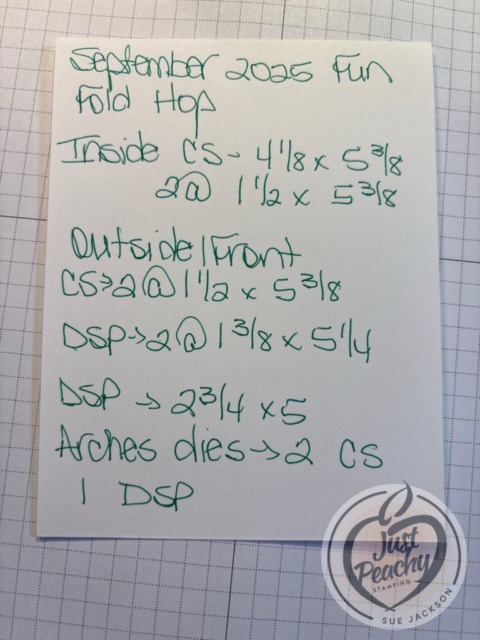 September 2025 Fun
Fold Hop
Inside CS- 4 1/8 x 5 3/8
2@ 1 1/2 x 5 3/8
Outside/Front
CS→2@1 1/2 x 5 3/8
DSP→2@ 1 3/8 x 5 1/4
DSP → 2 3/4 x 5
Arches dies→2 CS
1 DSP
Just
Peachy
STAMPING
SUE JACKSON